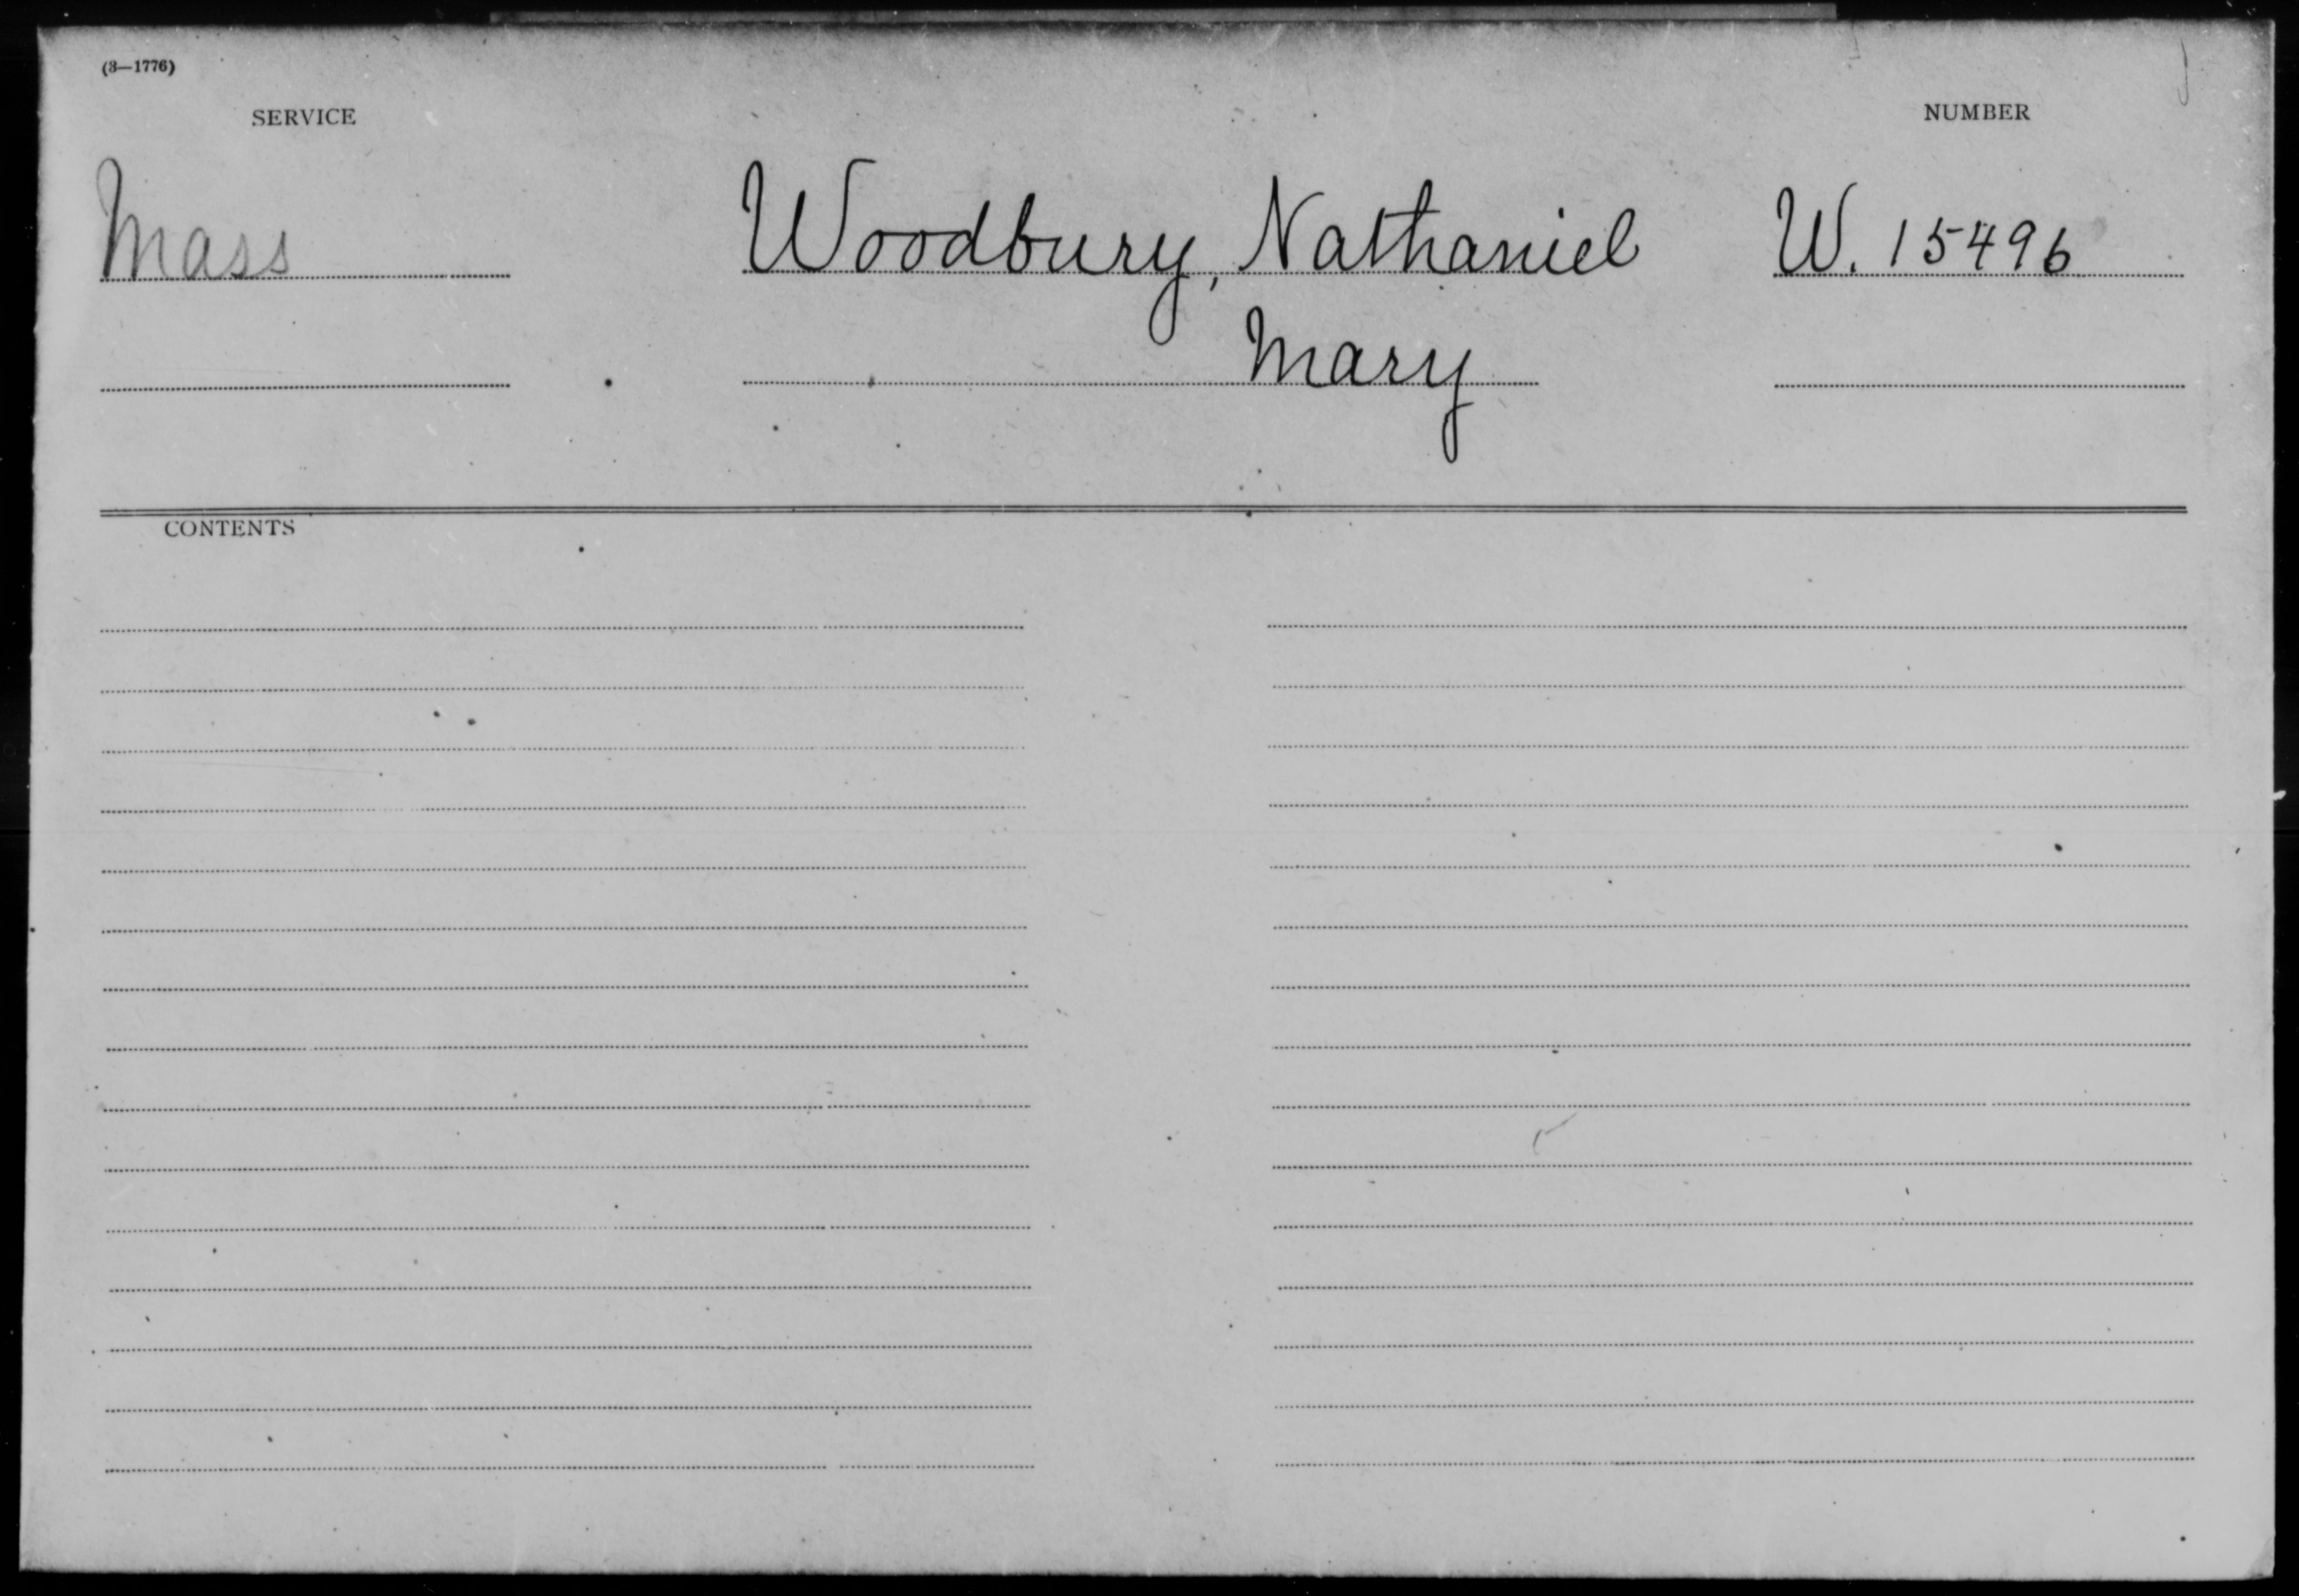 (3—1776)
SERVICE
NUMBER
Mass
Woodbury, Nathaniel
W. 15496
Mary
CONTENTS